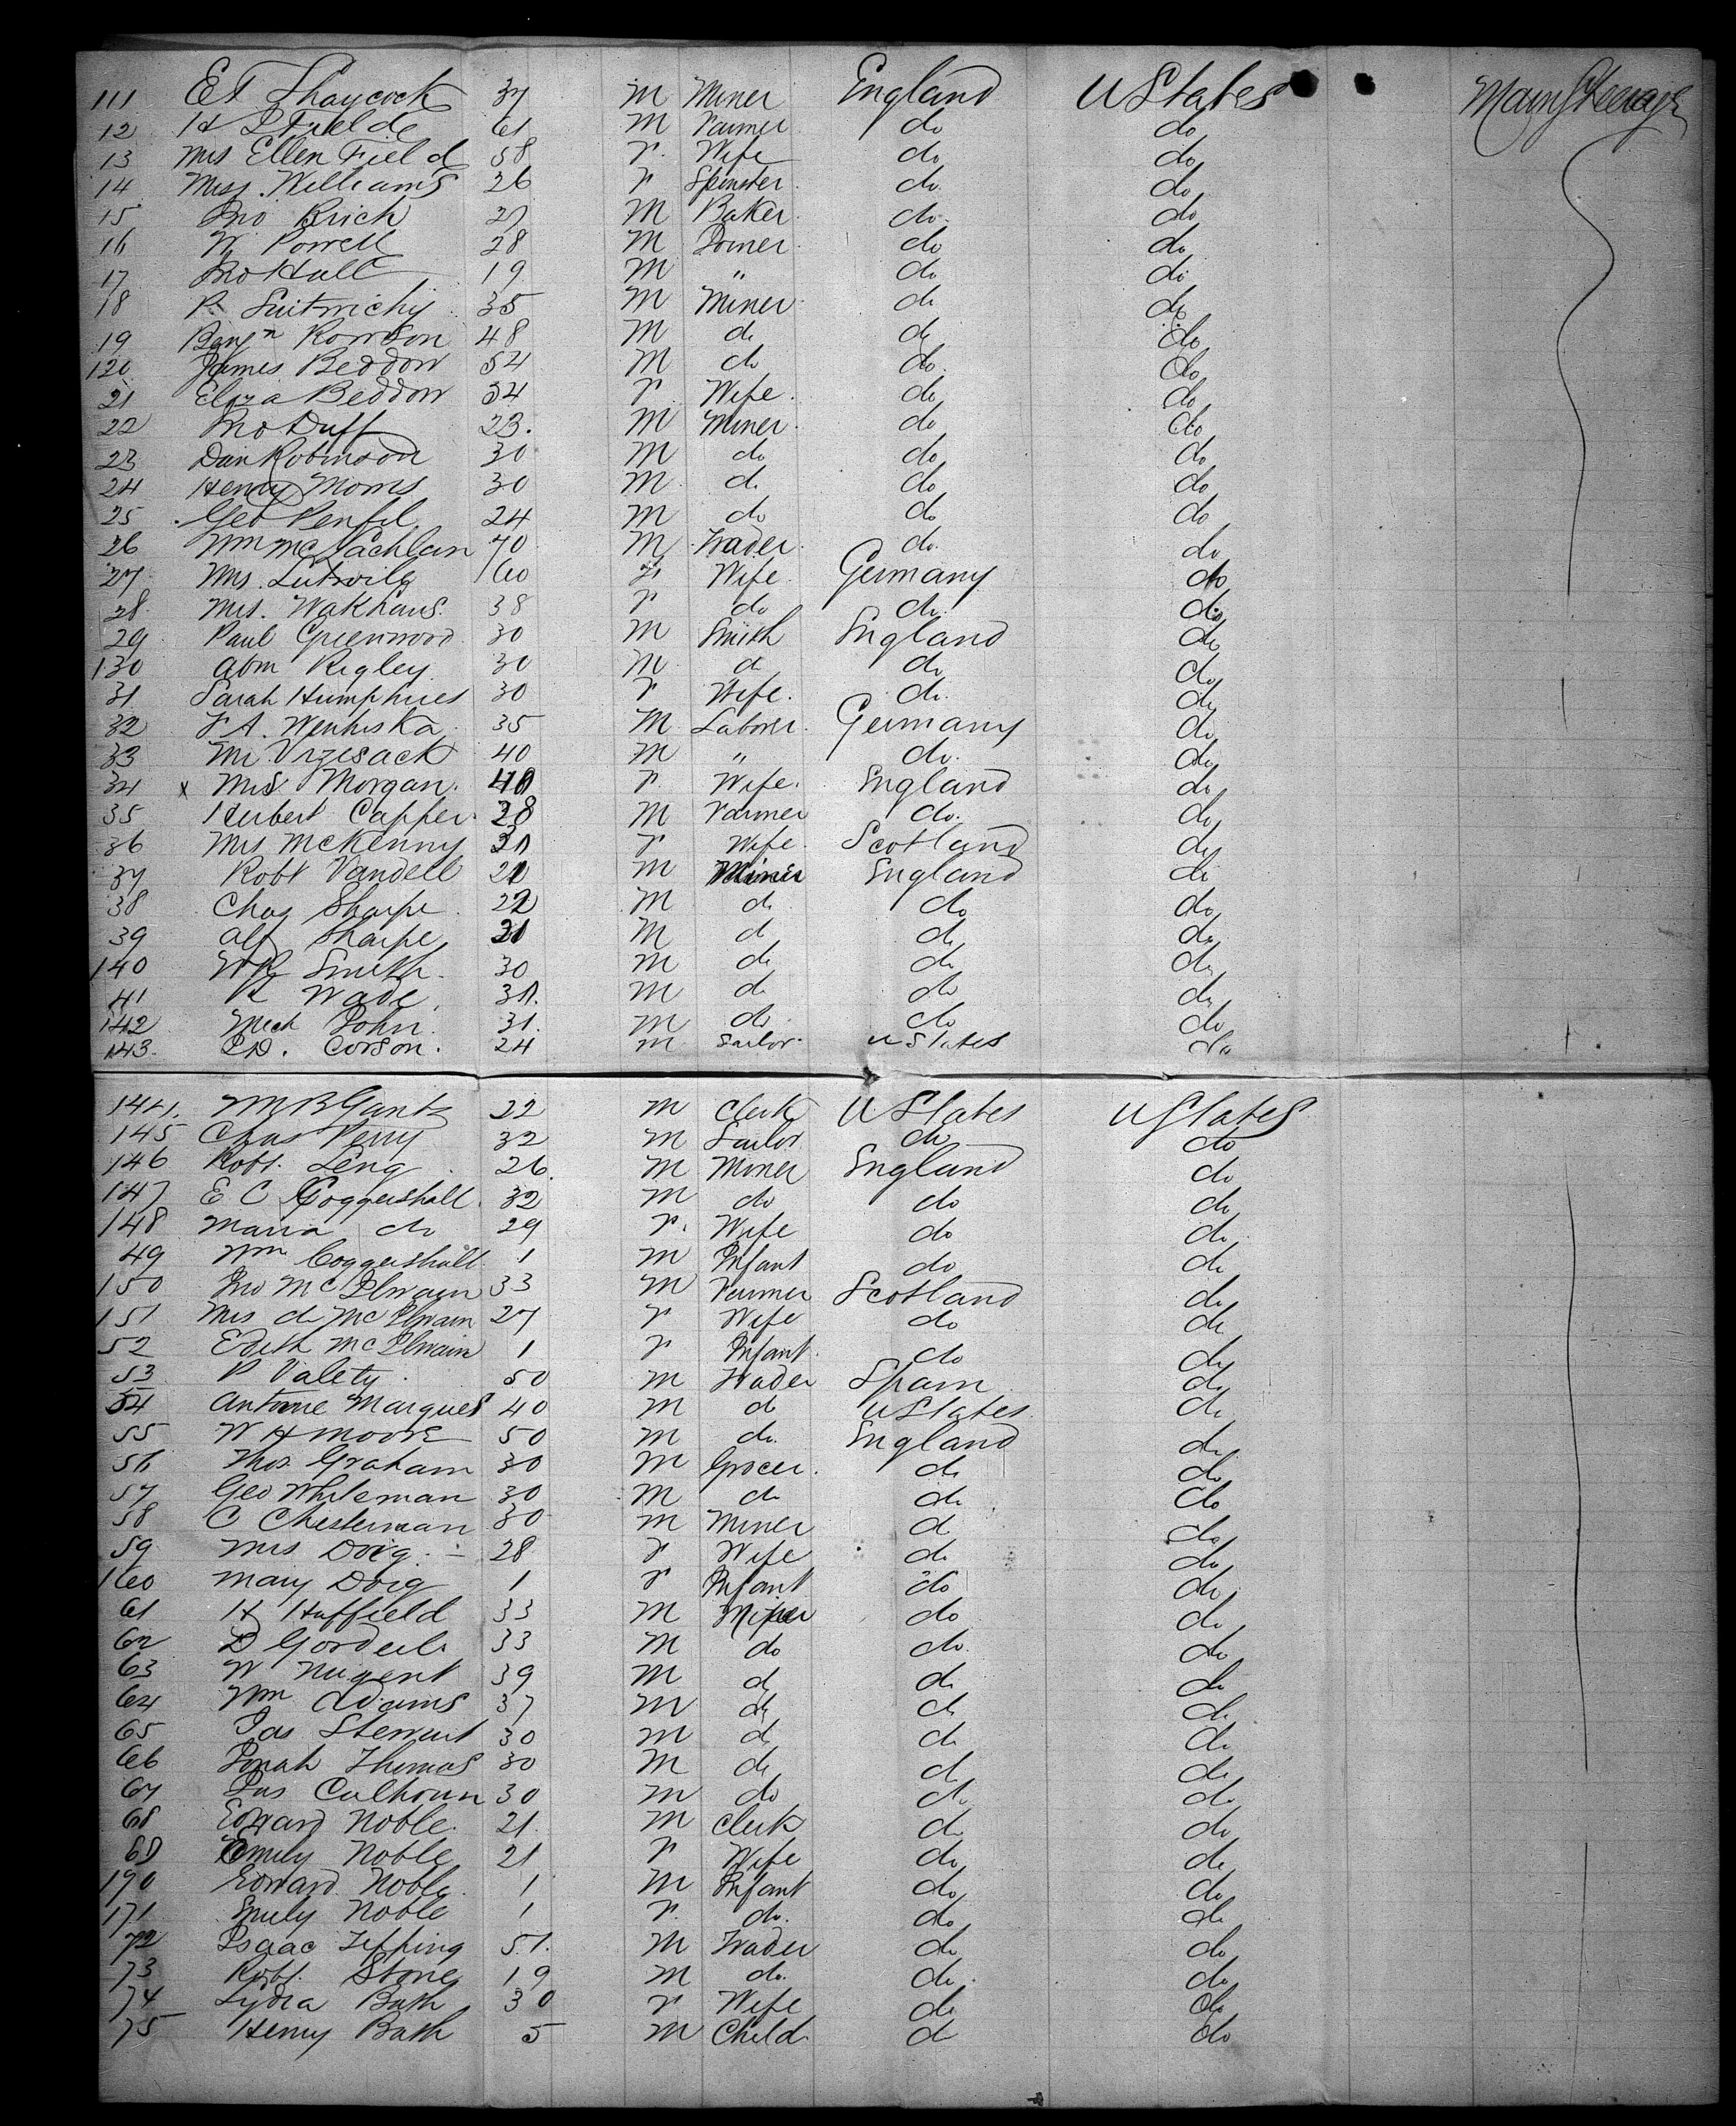 111 E T Shaycock 37 M Miner England U States Main Steerage
12 H Field 61 M Farmer do do
13 Mrs Ellen Field 58 F. Wife do do
14 Miss. Williams 26 F Spinster do. do
15 Jno Brich 27 M Baker. do. do
16 W. Powell 28 M do do
17 Jno Hall 19 M " do do
18 R. 35 M Miner do do
19 Benjn Rowson 48 M do do do
120 James Beddow 54 M do do. do
21 Eliza Beddow 54 F. Wife. do do
22 Jno Duff 23. M Miner. do do
23 Dan Robinson 30 M do do do
24 Henry Morris 30 M. do do do
25 Geo 24 M do do do
26 Wm McLachlan 40 M Trader. do. do
27 Mrs. 60 F Wife Germany do
28. Mrs. Wakhaus. 38 F do do. do
29 Paul Greenwood 30 M Smith England do
130 Abm Rigley 30 M. do do do
31 Sarah Humphries 30 F Wife. do. do
32 F A. Wenhiska 35 M Laborer. Germany do
33 Mr. Vrzesack 40 M " do. do
34 x Mrs Morgan. 40 F. Wife. England do
35 Herbert Capper. 28 M Farmer do. do
36 Mrs McKenny 30 F Wife. Scotland do
37 Robt Vandell 21 M Miner England do
38 Chas Sharpe 22 M do do do
39 Alf Sharpe 21 M d do do
140 Smith. 30 M do do do
41 Wade. 31. M do do do
142 John. 31. M do do do
143. Corson. 24 M Sailor. U States do
144. Wm B Gantz 22 M Clerk U States U States
145 Chas Perry 32 M Sailor do do
146 Robt. Leng 26. M Miner England do
147 E C Coggershall. 32 M do do do
148 Maria do 29 F. Wife do do
49 Wm Coggershall. 1 M Infant do do
150 Jno McIlwain 33 M Farmer Scotland do
151 Mrs do McIlwain 27 F Wife do do
52 Edith McIlwain 1 F Infant. do do
53 P Valety. 50 M Trader Spain do
54 Antoine Marques 40 M do U States do
55 W H Moore 50 M do. England do
56 Thos. Graham 30 M Grocer. do do
57 Geo Whileman 30 M do do do
58 C Chesterman 30 M Miner d do
59 Mrs Doig. - 28 F Wife do do
160 Mary Doig 1 F Infant do do
61 H Hatfield 33 M Miner do do
62 D 33 M do do. do
63 W Nugent 39 M do do do
64 Wm Adams 37 M do do do
65 Jas Stewart 30 M do do do
66 Jonah Thomas 30 M do do do
67 Jas Calhoun 30 M do do do
68 Edward Noble. 21. M Clerk do do
69 Emily Noble 21 F Wife do do
170 Edward Noble. 1 M Infant do do
171 Emily Noble 1 F. do. do do
72 Isaac Tepping 51. M Trader do do
73 Robt. Stone 19 M do. do do
74 Lydia Bath 30 F Wife do do
75 Henry Bath 5 M Child do do